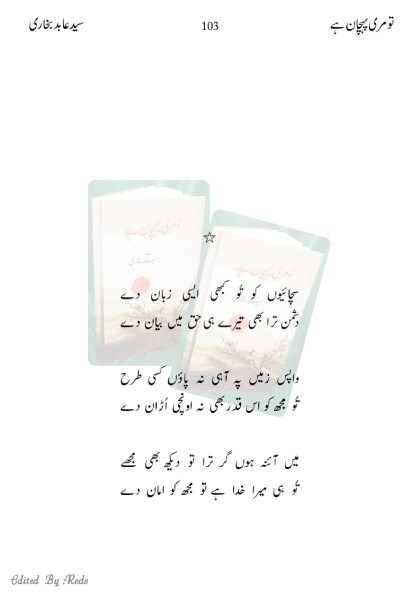 تو مری پہچان ہے 103 سید عابد بخاری
تو مری پہچان ہے
تو مری پہچان ہے
☆
سچائیوں کو تُو کبھی ایسی زبان دے
دشمن ترا بھی تیرے ہی حق میں بیان دے
واپس زمیں پہ آہی نہ پاؤں کسی طرح
تُو مجھ کو اس قدر بھی نہ اونچی اُڑان دے
میں آئنہ ہوں گر ترا تو دیکھ بھی مجھے
تُو ہی میرا خدا ہے تو مجھ کو امان دے
Edited By Reds